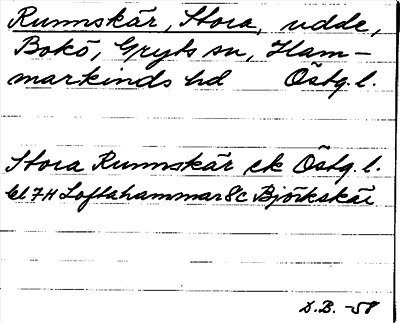 Runnskär, Stora, udde,
Bokö, Gryts sn, Ham-
markinds hd Östg. l.
Stora Runnskär ek Östg. l.
bl 7H Loftahammar 8c Björkskär
D.B. -58